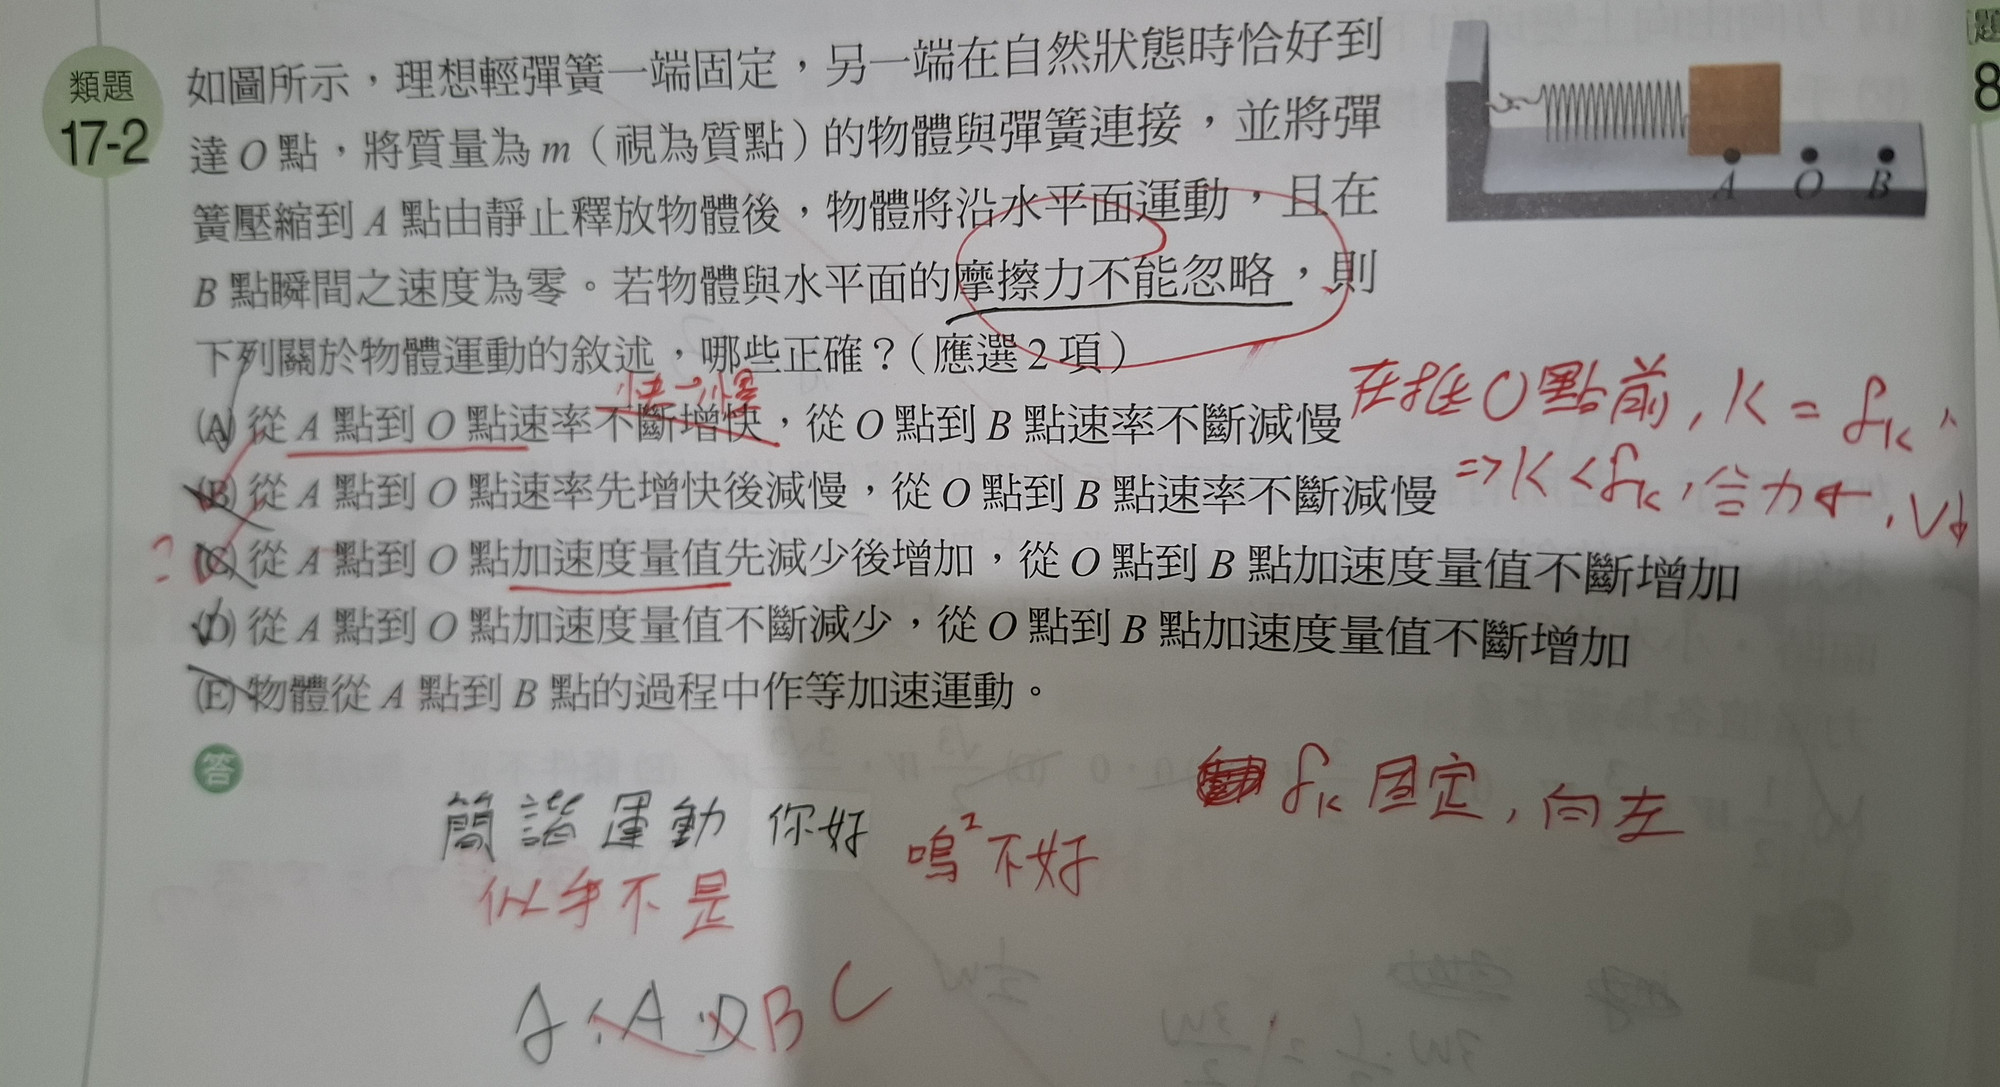 類題
17-2
如圖所示，理想輕彈簧一端固定，另一端在自然狀態時恰好到
達 O 點，將質量為 m（視為質點）的物體與彈簧連接，並將彈
簧壓縮到 A 點由靜止釋放物體後，物體將沿水平面運動，且在
B 點瞬間之速度為零。若物體與水平面的摩擦力不能忽略，則
下列關於物體運動的敘述，哪些正確？（應選 2 項）
快→慢
(A) 從 A 點到 O 點速率不斷增快，從 O 點到 B 點速率不斷減慢
(B) 從 A 點到 O 點速率先增快後減慢，從 O 點到 B 點速率不斷減慢
(C) 從 A 點到 O 點加速度量值先減少後增加，從 O 點到 B 點加速度量值不斷增加
(D) 從 A 點到 O 點加速度量值不斷減少，從 O 點到 B 點加速度量值不斷增加
(E) 物體從 A 點到 B 點的過程中作等加速運動。
A O B
題
8
O點前, K = fK
=> K < fK, 合力←, V↓
?
答
簡諧運動 你好
嗚² 不好
似乎不是
fK 固定, 向左
A D B C